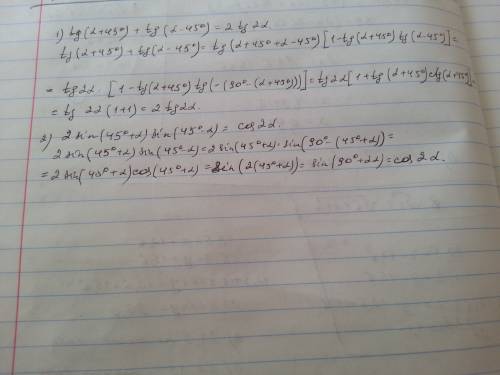 1) tg(α+45°) + tg(α-45°) = 2 tg2α.
tg(α+45°) + tg(α-45°) = tg(α+45°+α-45°) [1-tg(α+45°) tg(α-45°)] =
= tg2α · [1-tg(α+45°) tg(-(90°-(α+45°)))] = tg2α[1+tg(α+45°)ctg(α+45°)]
= tg 2α (1+1) = 2 tg2α.
2) 2 sin(45°+α) sin(45°-α) = cos2α.
2 sin(45°+α) sin(45°-α) = 2 sin(45°+α) · sin(90°-(45°+α)) =
= 2 sin(45°+α) cos(45°+α) = sin(2(45°+α)) = sin(90°+2α) = cos2α.